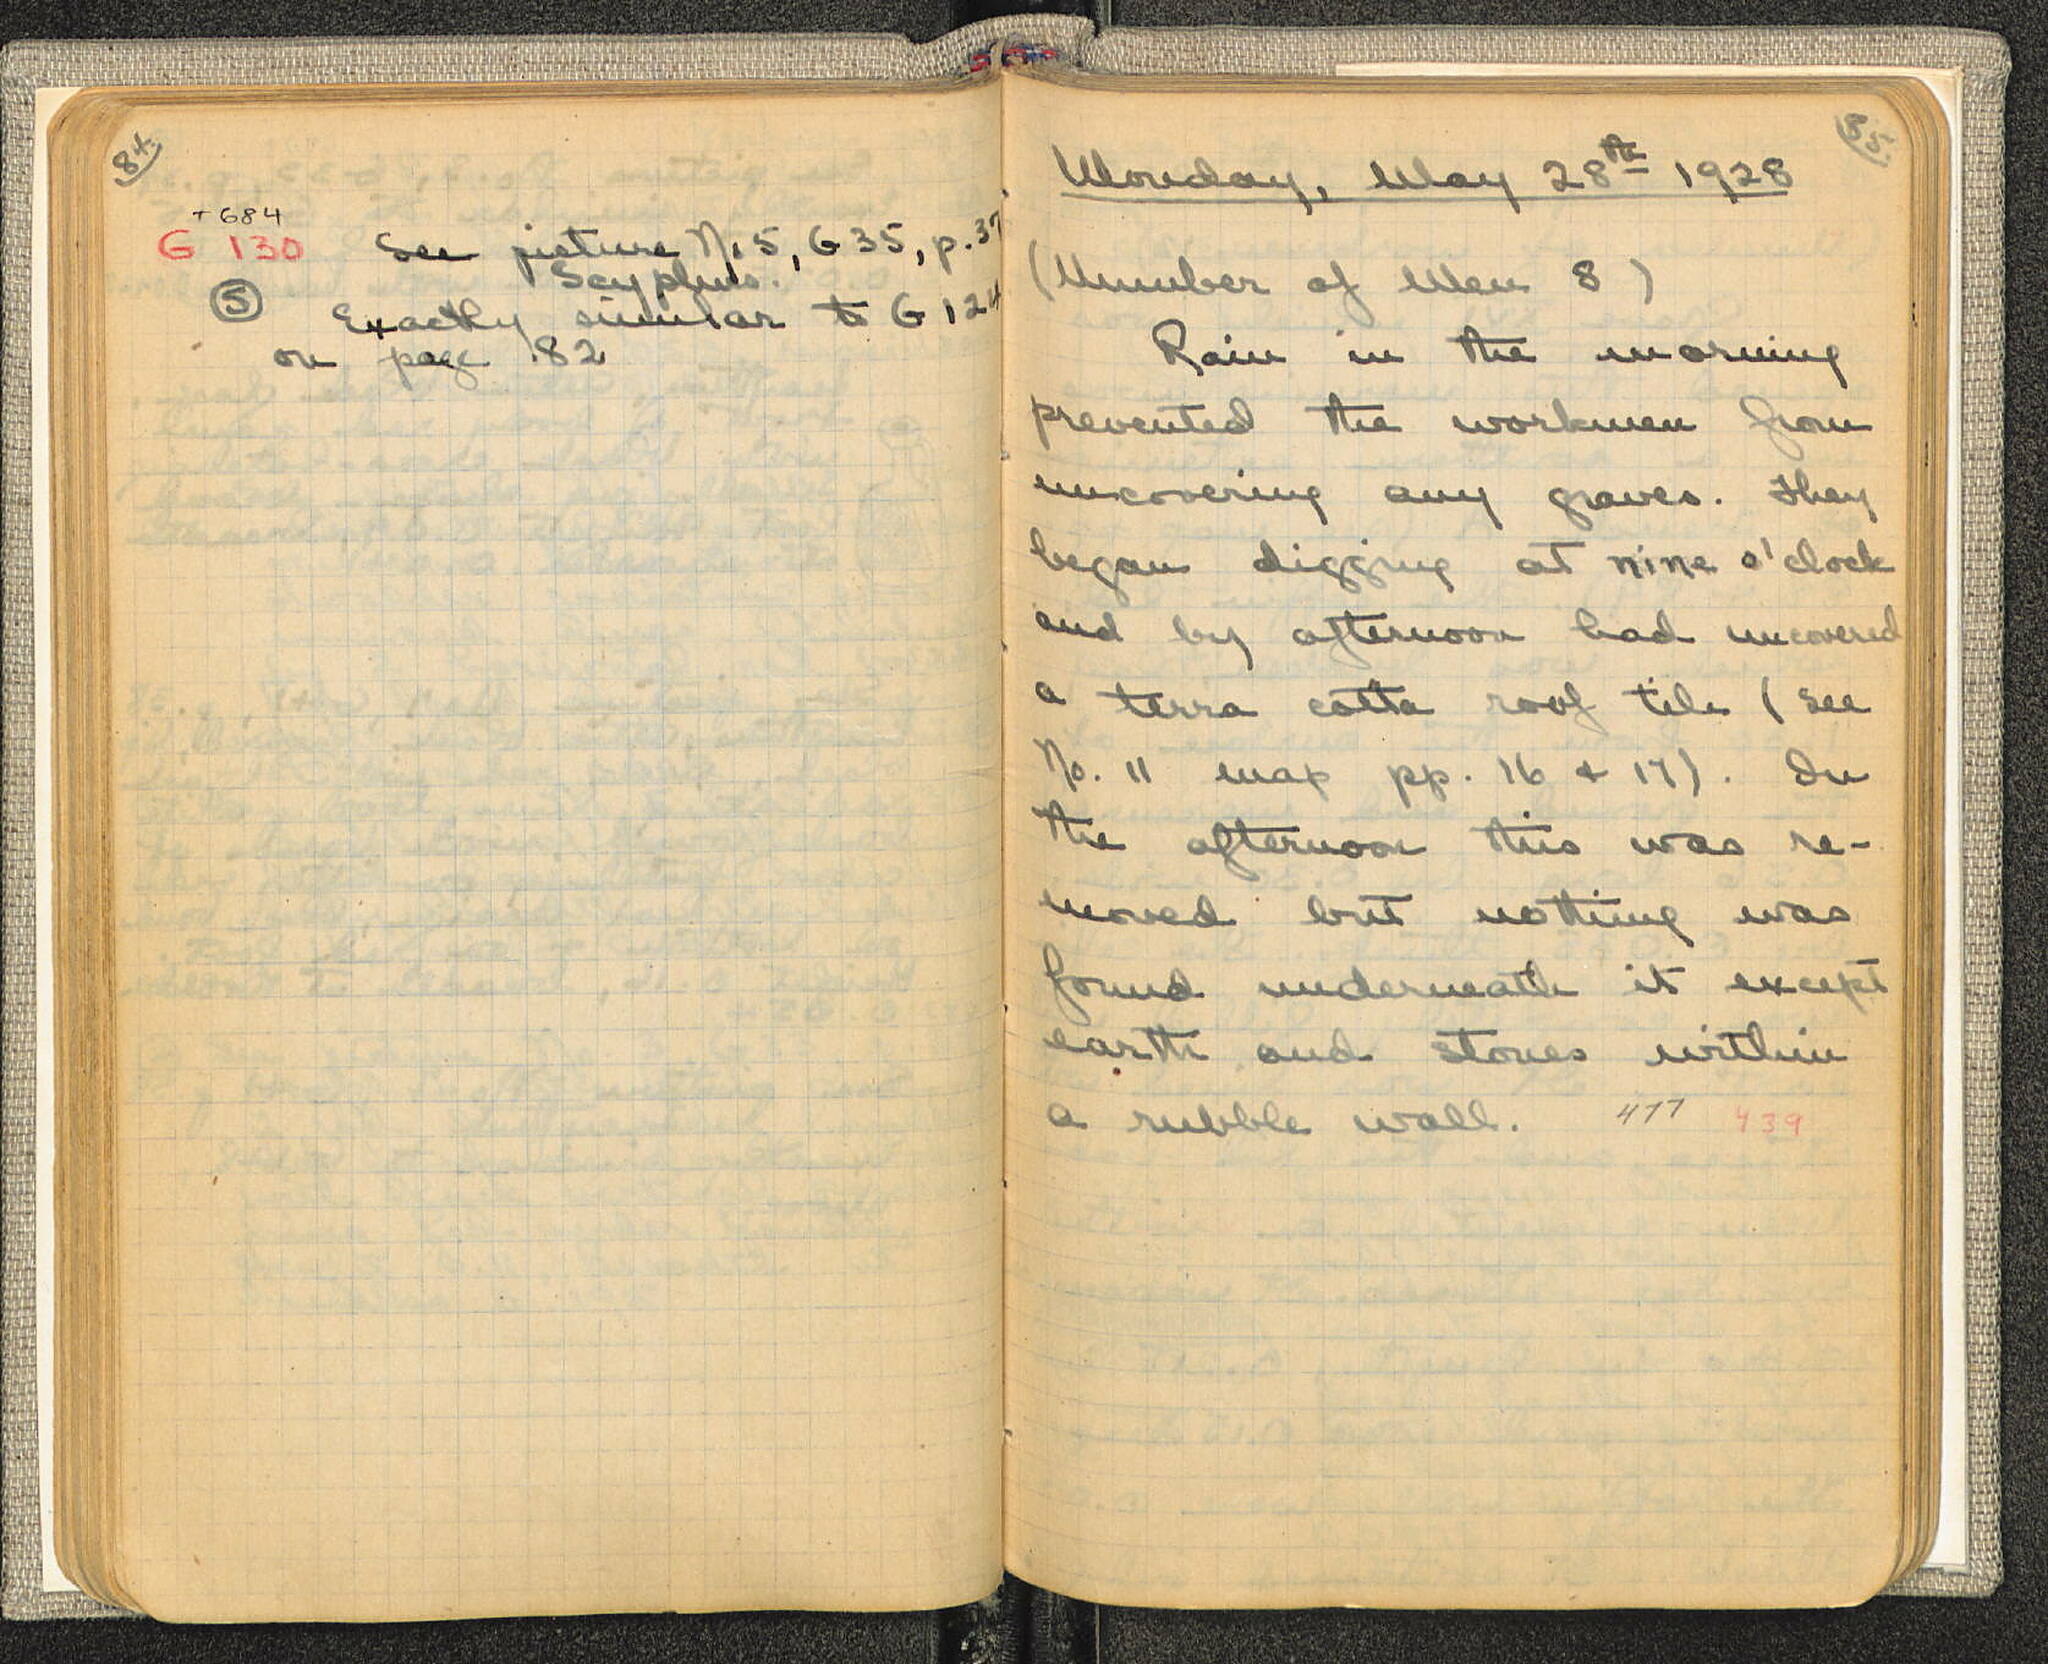 84.
T 684
G 130 See picture No 5, G 35, p. 37
Scyphus.
5 Exactly similar to G 124
on page 82
85.
Monday, May 28th 1928
(Number of Men 8)
Rain in the morning
prevented the workmen from
uncovering any graves. They
began digging at nine o'clock
and by afternoon had uncovered
a terra cotta roof tile (see
No. 11 map pp. 16 + 17). In
the afternoon this was re-
moved but nothing was
found underneath it except
earth and stones within
a rubble wall. 477 439